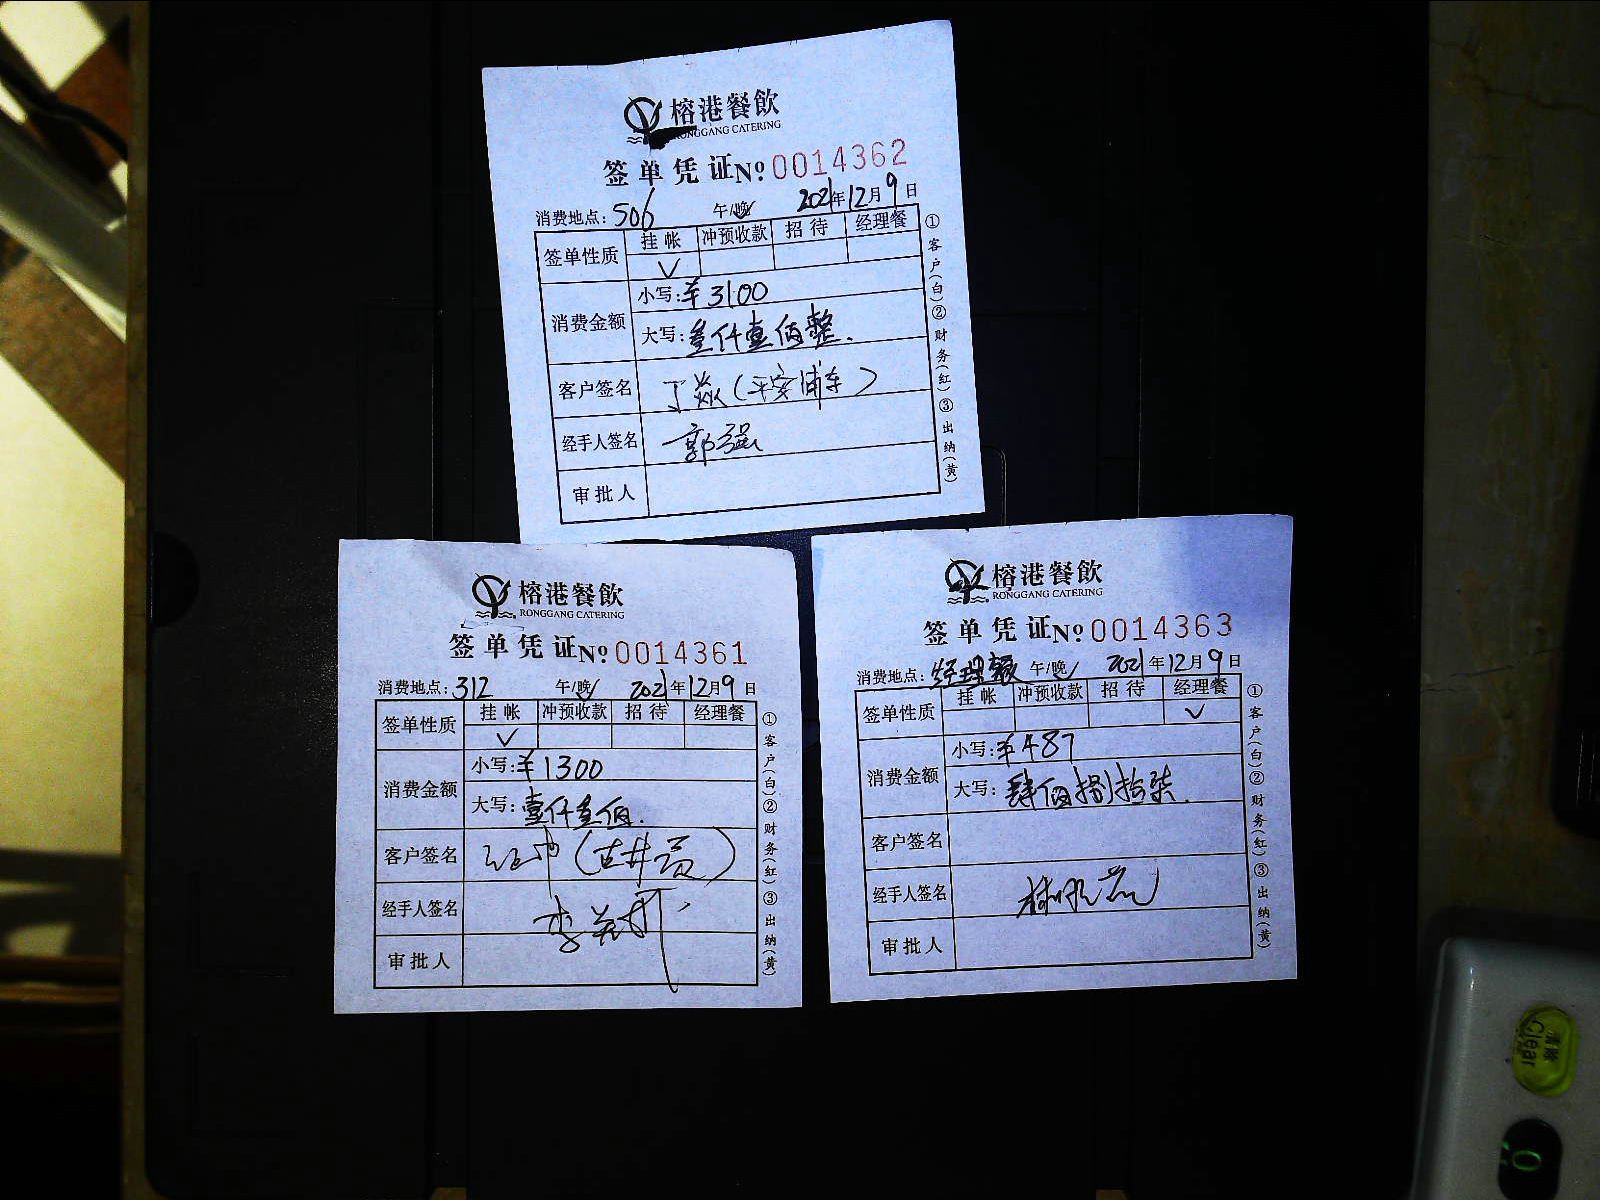 榕港餐飲
RONGGANG CATERING
签单凭证 Nº 0014362
消费地点: 506 午/晚 2021年12月9日
签单性质 挂帐 冲预收款 招待 经理餐
✓
消费金额 小写: ¥3100
大写: 叁仟壹佰整.
客户签名 (平安浦东)
经手人签名 郭强
审批人
①客户(白)②财务(红)③出纳(黄)
榕港餐飲
RONGGANG CATERING
签单凭证 Nº 0014361
消费地点: 312 午/晚 2021年12月9日
签单性质 挂帐 冲预收款 招待 经理餐
✓
消费金额 小写: ¥1300
大写: 壹仟叁佰.
客户签名
经手人签名
审批人
①客户(白)②财务(红)③出纳(黄)
榕港餐飲
RONGGANG CATERING
签单凭证 Nº 0014363
消费地点: 经理餐 午/晚 2021年12月9日
签单性质 挂帐 冲预收款 招待 经理餐
✓
消费金额 小写: ¥487
大写: 肆佰捌拾柒.
客户签名
经手人签名
审批人
①客户(白)②财务(红)③出纳(黄)
清除
Clear
0